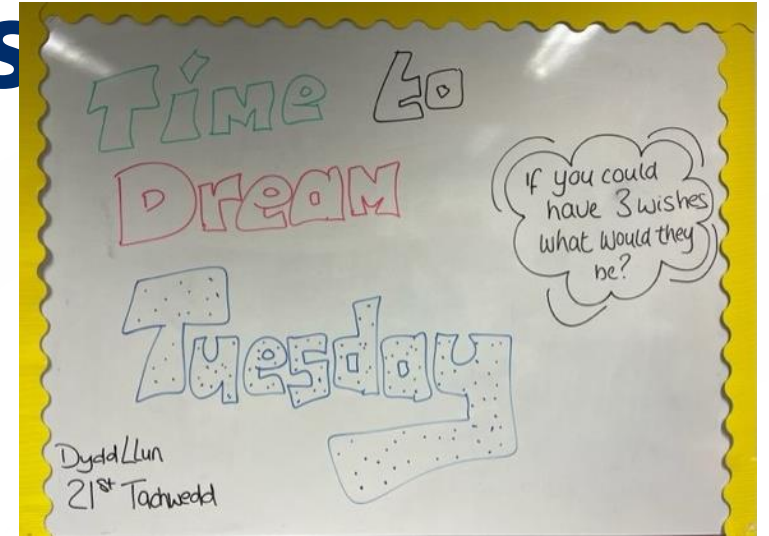 s
Time to
Dream
Tuesday
If you could
have 3 wishes
what would they
be?
Dydd Llun
21st Tachwedd